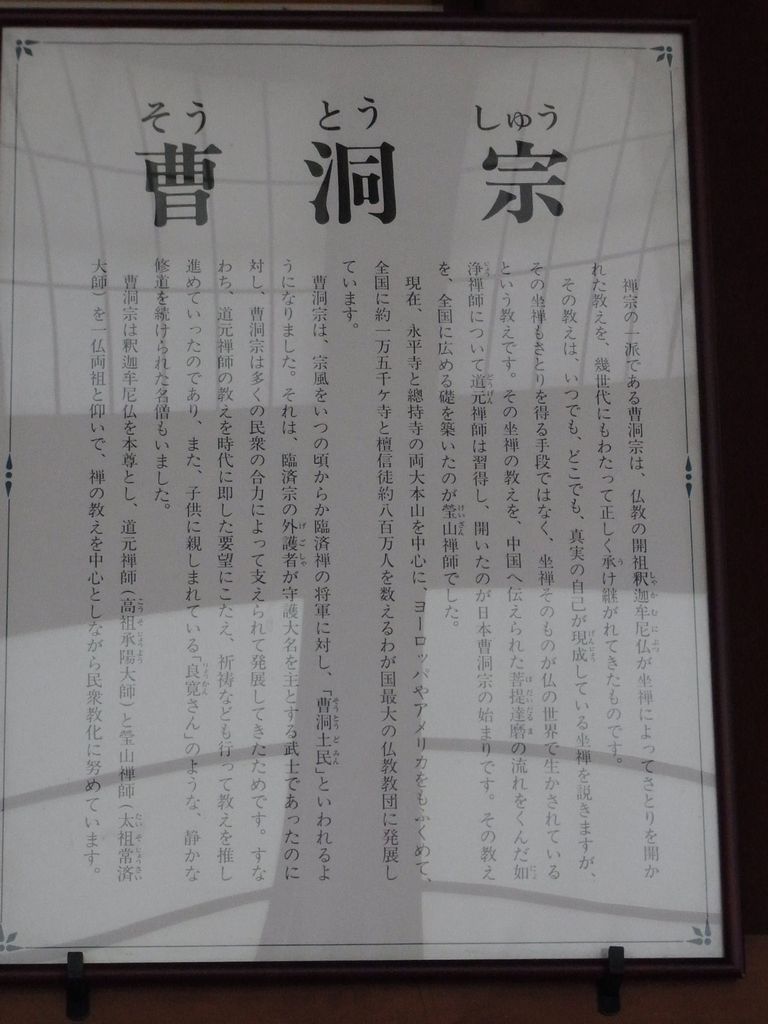 そう とう しゅう
曹洞宗
禅宗の一派である曹洞宗は、仏教の開祖釈迦牟尼仏が坐禅によってさとりを開か
れた教えを、幾世代にもわたって正しく承け継がれてきたものです。
その教えは、いつでも、どこでも、真実の自己が現成している坐禅を説きますが、
その坐禅もさとりを得る手段ではなく、坐禅そのものが仏の世界で生かされている
という教えです。その坐禅の教えを、中国へ伝えられた菩提達磨の流れをくんだ如
浄禅師について道元禅師は習得し、開いたのが日本曹洞宗の始まりです。その教え
を、全国に広める礎を築いたのが瑩山禅師でした。
現在、永平寺と總持寺の両大本山を中心に、ヨーロッパやアメリカをもふくめて、
全国に約一万五千ケ寺と檀信徒約八百万人を数えるわが国最大の仏教教団に発展し
ています。
曹洞宗は、宗風をいつの頃からか臨済禅の将軍に対し、「曹洞土民」といわれるよ
うになりました。それは、臨済宗の外護者が守護大名を主とする武士であったのに
対し、曹洞宗は多くの民衆の合力によって支えられて発展してきたためです。すな
わち、道元禅師の教えを時代に即した要望にこたえ、祈祷なども行って教えを推し
進めていったのであり、また、子供に親しまれている「良寛さん」のような、静かな
修道を続けられた名僧もいました。
曹洞宗は釈迦牟尼仏を本尊とし、道元禅師(高祖承陽大師)と瑩山禅師(太祖常済
大師)を一仏両祖と仰いで、禅の教えを中心としながら民衆教化に努めています。